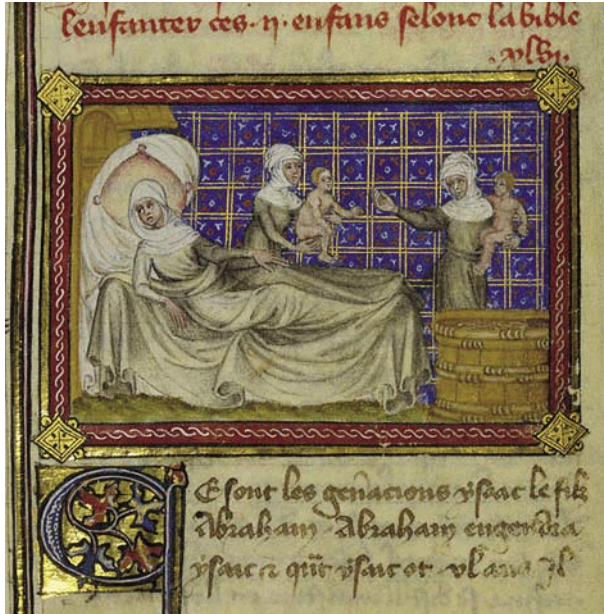 lenfanter ces .ii. enfans selonc la bible
.xlvi.
Ce sont les gen̄acions ysaac le filz
Abraham. Abraham engendra
ysaac & qn̄t ysaac ot .xl. ans il